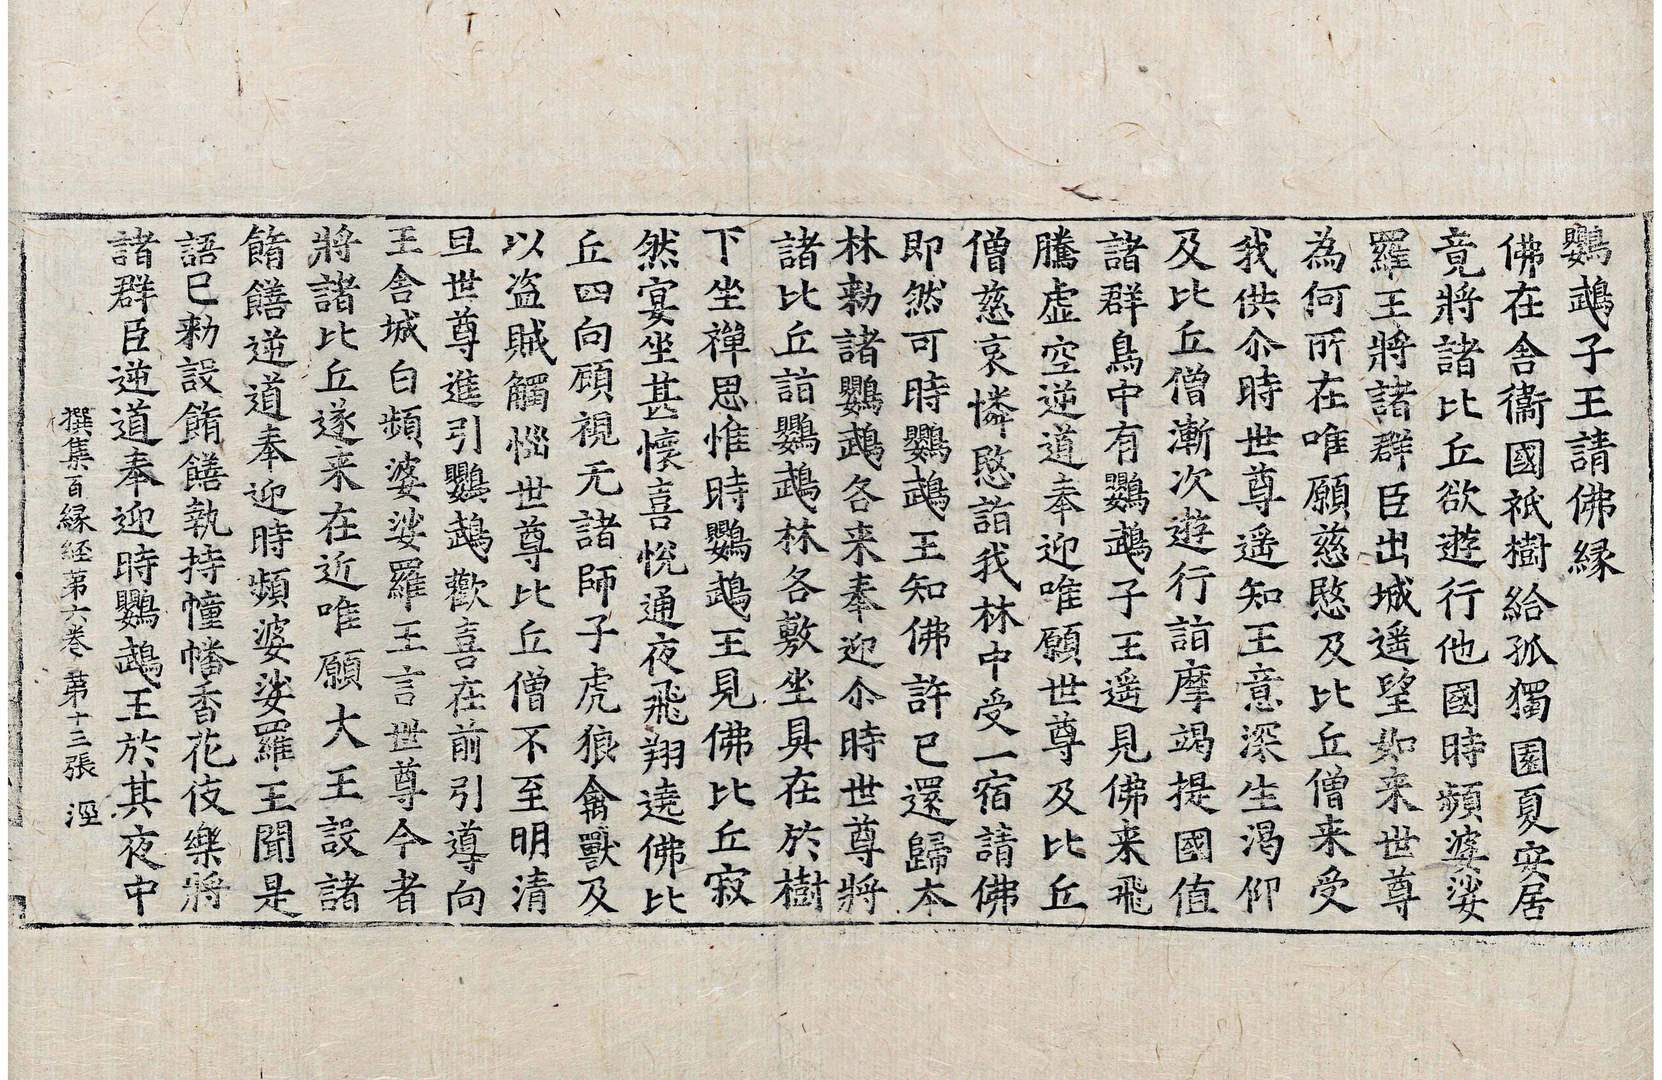 鸚鵡子王請佛緣
佛在舍衞國祇樹給孤獨園夏安居
竟將諸比丘欲遊行他國時頻婆娑
羅王將諸群臣出城遥望如来世尊
為何所在唯願慈愍及比丘僧来受
我供尒時世尊遥知王意深生渴仰
及比丘僧漸次遊行詣摩竭提國值
諸群鳥中有鸚鵡子王遥見佛来飛
騰虚空逆道奉迎唯願世尊及比丘
僧慈哀憐愍詣我林中受一宿請佛
即然可時鸚鵡王知佛許已還歸本
林勑諸鸚鵡各来奉迎尒時世尊將
諸比丘詣鸚鵡林各敷坐具在於樹
下坐禪思惟時鸚鵡王見佛比丘寂
然宴坐甚懷喜悅通夜飛翔遶佛比
丘四向顧視无諸師子虎狼禽獸及
以盗賊觸惱世尊比丘僧不至明清
旦世尊進引鸚鵡歡喜在前引導向
王舍城白頻婆娑羅王言世尊今者
將諸比丘遂来在近唯願大王設諸
餚饍逆道奉迎時頻婆娑羅王聞是
語已勑設餚饍執持幢幡香花伎樂將
諸群臣逆道奉迎時鸚鵡王於其夜中
撰集百緣経第六卷 第十三張 涇